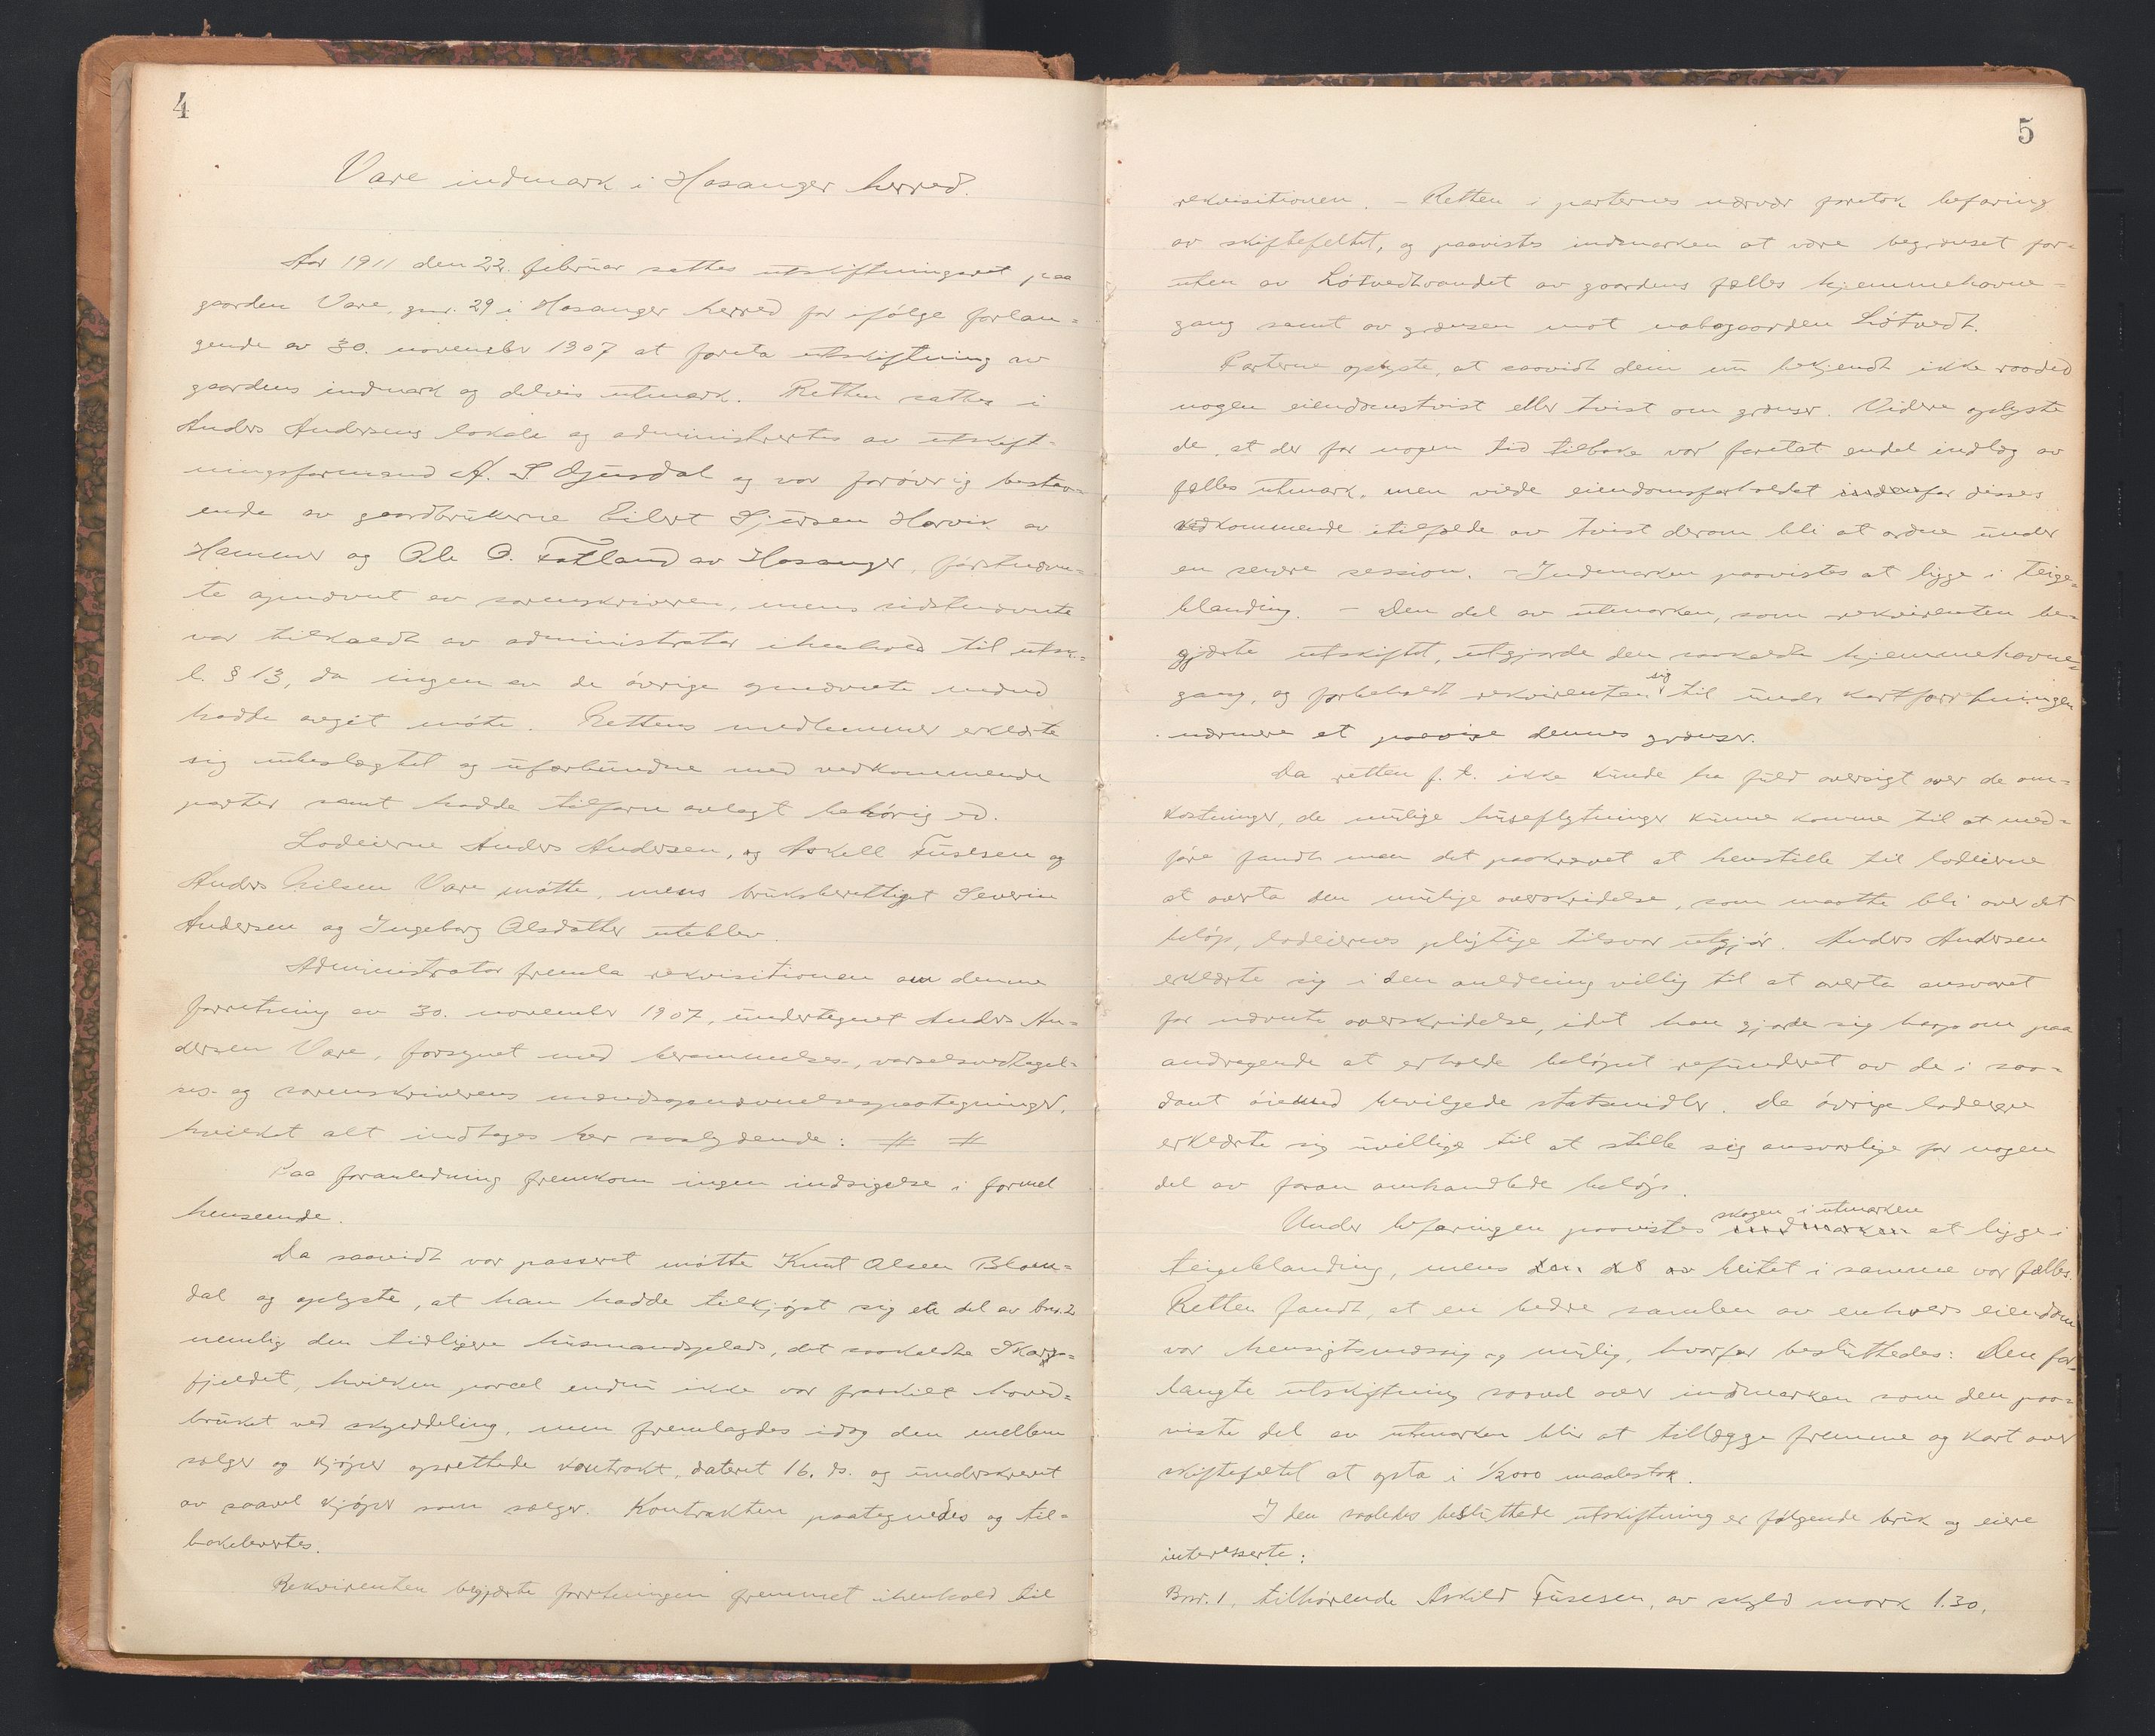 4
Vare indmark i Hosanger herred.
Aar 1911 den 22. februar sattes utskiftningsret paa
gaarden Vare, gnr. 29 i Hosanger herred for ifölge forlan=
gende av 30. november 1907 at foreta utskiftning av
gaardens indmark og delvis utmark. Retten sattes i
Anders Andersens lokale og administrertes av utskift=
ningsformand A. S. Gjusdal og var forövrig bestaa=
ende av gaardbrukerne Eilert Sjursen Horvik av
Hammer og Ole O. Fotland av Hosanger, förstnævn=
te opnævnt av sorenskriveren, mens sidstnævnte
var tilkaldt av administrator ihenhold til utsk.=
l. § 13, da ingen av de övrige opnævnte mænd
hadde avgit möte. Rettens medlemmer erklærte
sig ubeslægtet og uforbundne med vedkommende
parter samt hadde tilforn avlagt behörig ed.
Lodeierne Anders Andersen, og Askell Fusesen og
Anders Nilsen Vare mötte, mens bruksberettiget Severin
Andersen og Ingeborg Olsdatter uteblev.
Administrator fremla rekvisitionen om denne
forretning av 30. november 1907, undertegnet Anders An=
dersen Vare, forsynet med berammelses-, varselsvedtagel=
ses- og sorenskriverens mændsopnævnelsespaategninger,
hvilket alt indtages her saalydende: # #
Paa foranledning fremkom ingen indsigelse i formel
henseende.
Da saavidt var passeret mötte Knut Olsen Blom=
dal og oplyste, at han hadde tilkjöpt sig en del av bnr. 2
nemlig den tidligere husmandsplads, det saakaldte Skarps=
fjeldet, hvilken parcel endnu ikke var fraskilt hoved=
bruket ved skylddeling, men fremlagdes idag den mellem
sælger og kjöper oprettede kontrakt, dateret 16. ds. og underskrevet
av saavel kjöper som sælger. Kontrakten paategnedes og til=
bakelevertes.
Rekvirenten begjærte forretningen fremmet ihenhold til
5
rekvisitionen. - Retten i parternes nærvær foretok befaring
av skiftefeltet, og paavistes indmarken at være begrænset for=
uten av Lötvedtvandet av gaardens fælles hjemmehavne=
gang samt av grænsen mot nabogaarden Lötvedt.
Parterne oplyste, at saavidt dem nu bekjendt ikke raaded
nogen eiendomstvist eller tvist om grænser. Videre oplyste
de, at der for nogen tid tilbake var foretat endel indlæg av
fælles utmark, men vilde eiendomsforholdet indenfor disses
vedkommende itilfælde av tvist derom bli at ordne under
en senere session. - Indmarken paavistes at ligge i teige=
blanding. - Den del av utmarken, som rekvirenten be=
gjærte utskiftet, utgjorde den saakaldte hjemmehavne=
gang, og forbeholdt rekvirenten sig til under kartforretningen
nærmere at paavise dennes grænser.
Da retten f. t. ikke kunde ha fuld oversigt over de om=
kostninger, de mulige huseflytninger kunne komme til at med=
före fandt man det paakrævet at henstille til lodeierne
at overta den mulige overskridelse, som maatte bli over det
belöp, lodeiernes pligtige tilsvar utgjör. Anders Andersen
erklærte sig i den anledning villig til at overta ansvaret
for nævnte overskridelse, idet han gjorde sig haap om paa
andragende at erholde belöpet refunderet av de i saa=
dant öiemed bevilgede statsmidler. De övrige lodeiere
erklærte sig uvillige til at stille sig ansvarlige for nogen
del av foran omhandlede belöp.
Under befaringen paavistes skogen i utmarken indmarken at ligge i
teigeblanding, mens den del av beitet i samme var fælles.
Retten fandt, at en bedre samlen av enhvers eiendom
var hensigtsmæssig og mulig, hvorfor besluttedes: Den for=
langte utskiftning saavel over indmarken som den paa=
viste del av utmarken blir at tillægge fremme og kart over
skiftefeltet at opta i 1/2000 maalestok.
I den saaledes besluttede utskiftning er følgende bruk og eiere
interesserte:
Bnr. 1, tilhörende Askild Fusesen, av skyld mark 1.30,